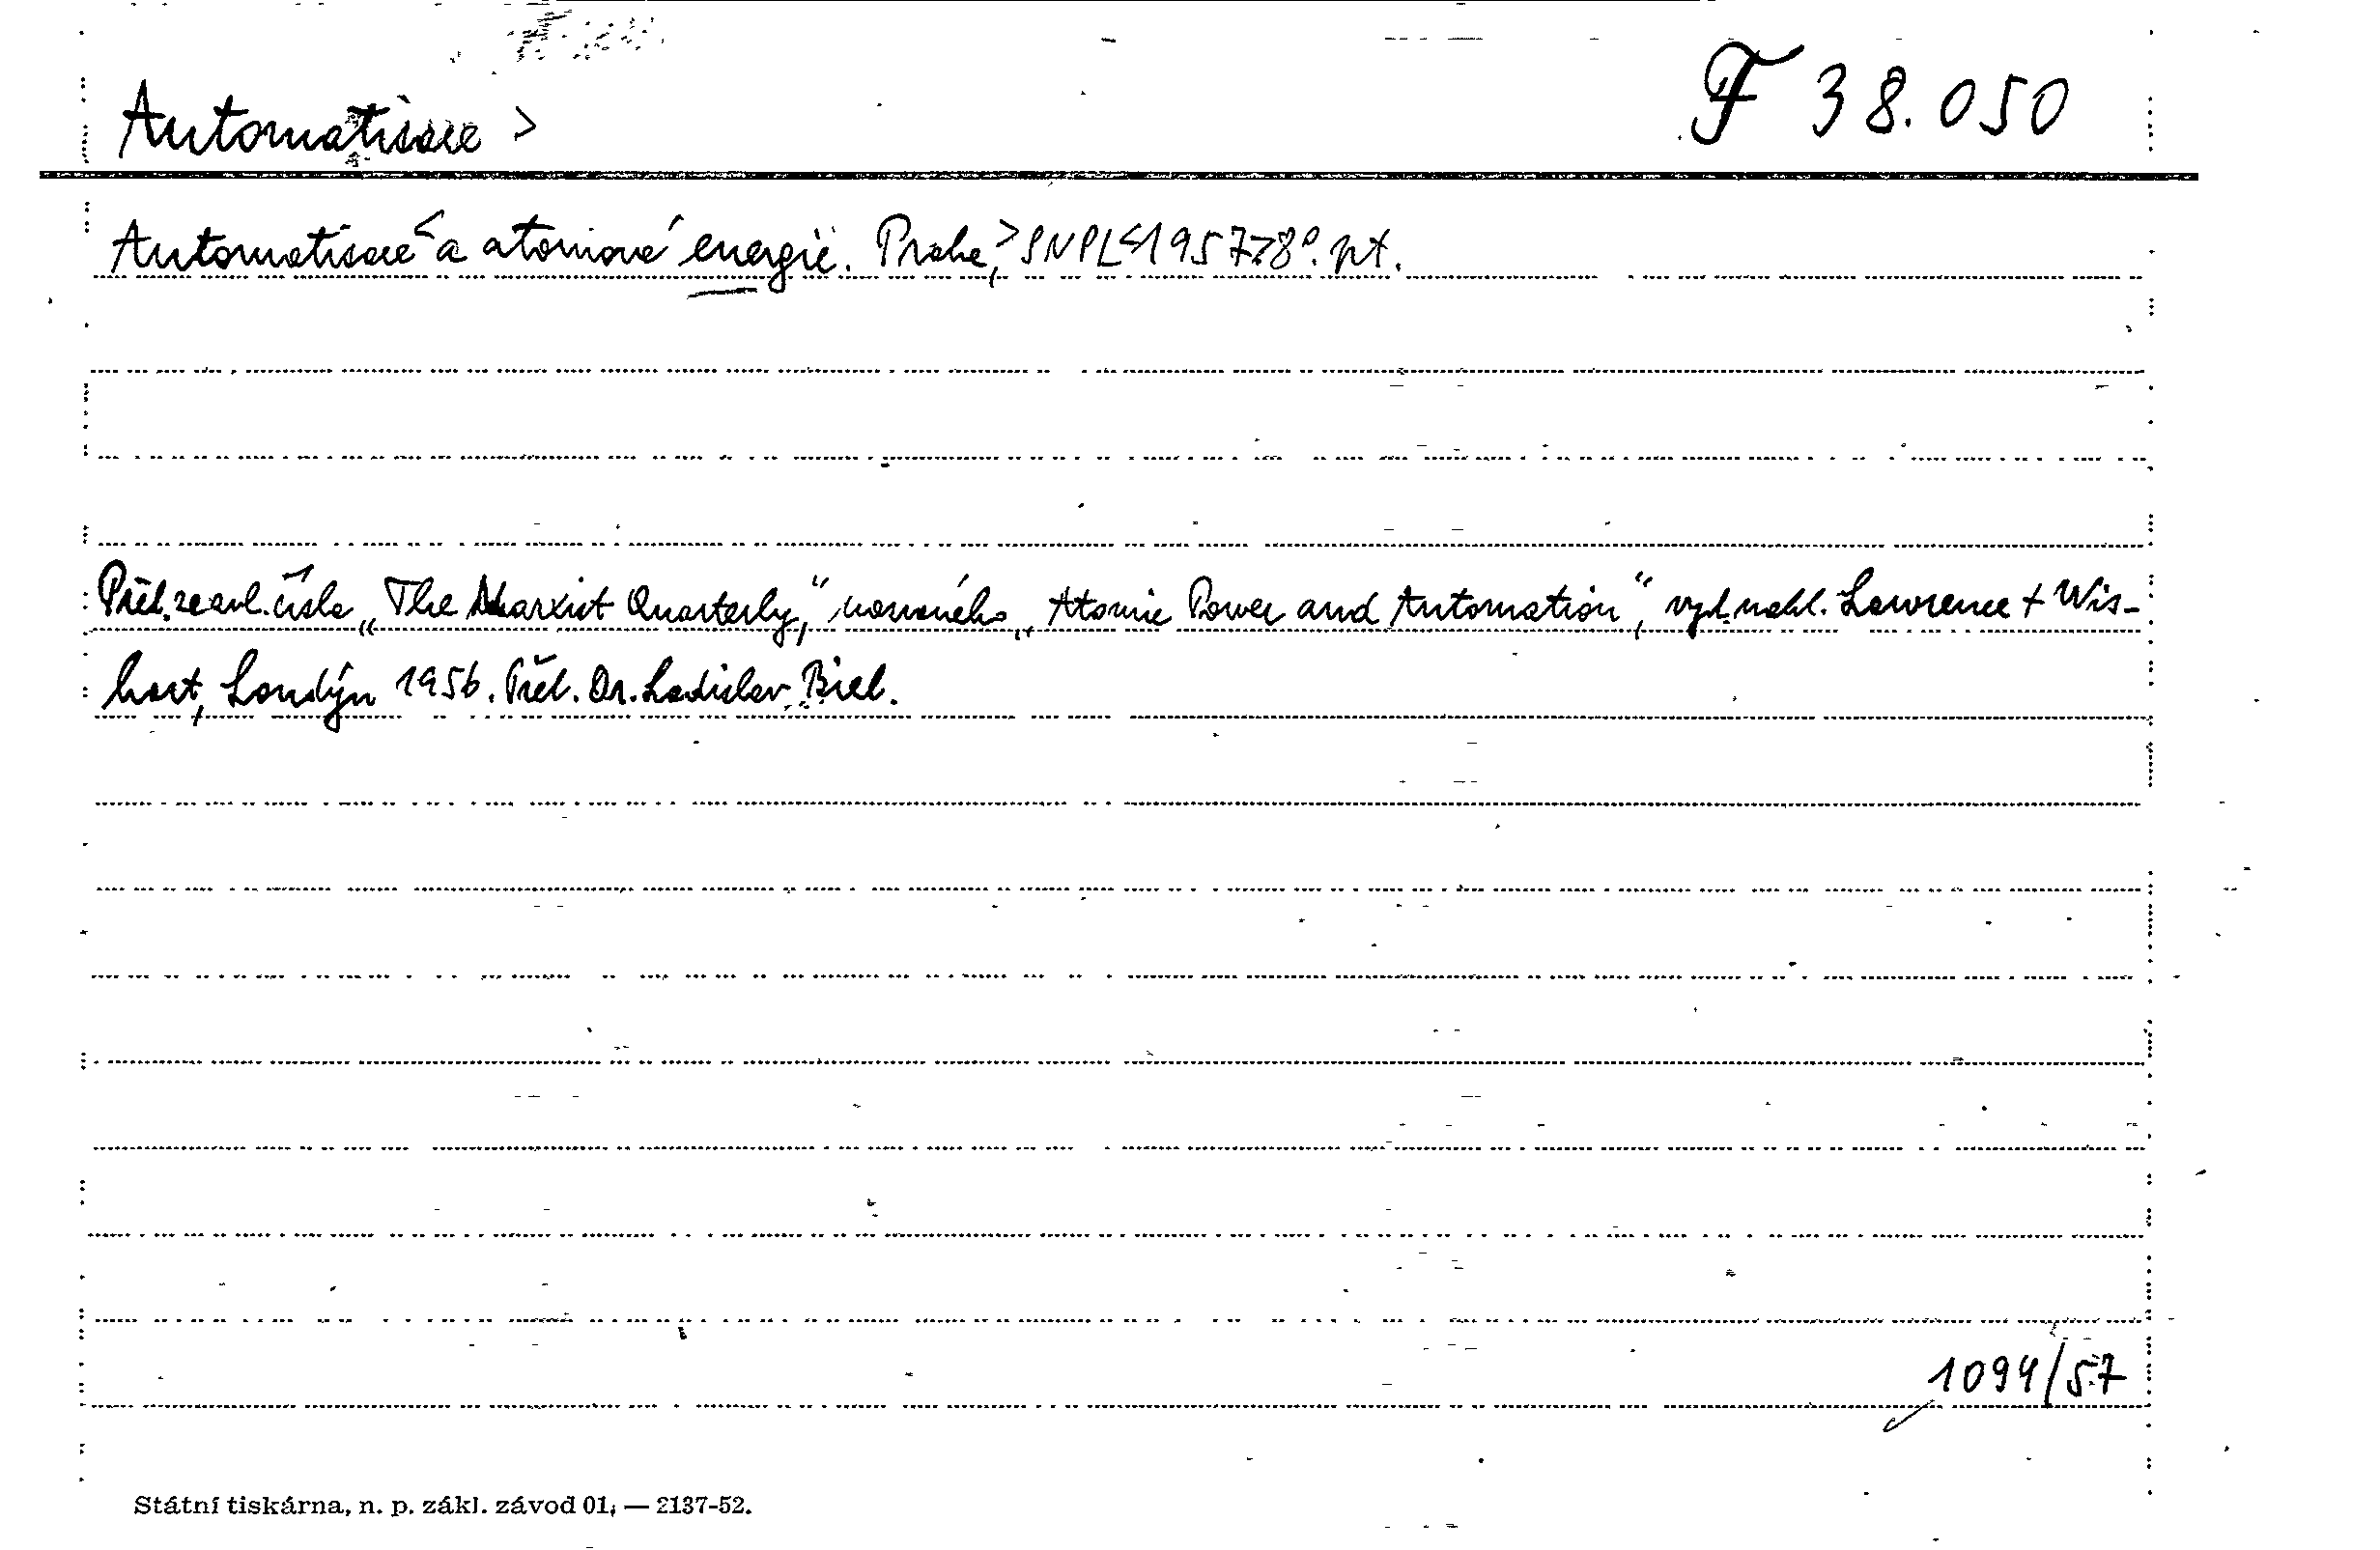 Automatisace >
F 38.050
Automatisace < a atomová energie. Praha, > SNPL < 1957 > 8°. pt.
Přel. ze zvl. čísla „The Marxist Quarterly," „Atomic Power and Automation", vyd. nakl. Lawrence + Wis-
hart, Londýn 1956. Přel. Dr. Ladislav Biel.
1094/57
Státní tiskárna, n. p. zákl. závod 01; — 2137-52.